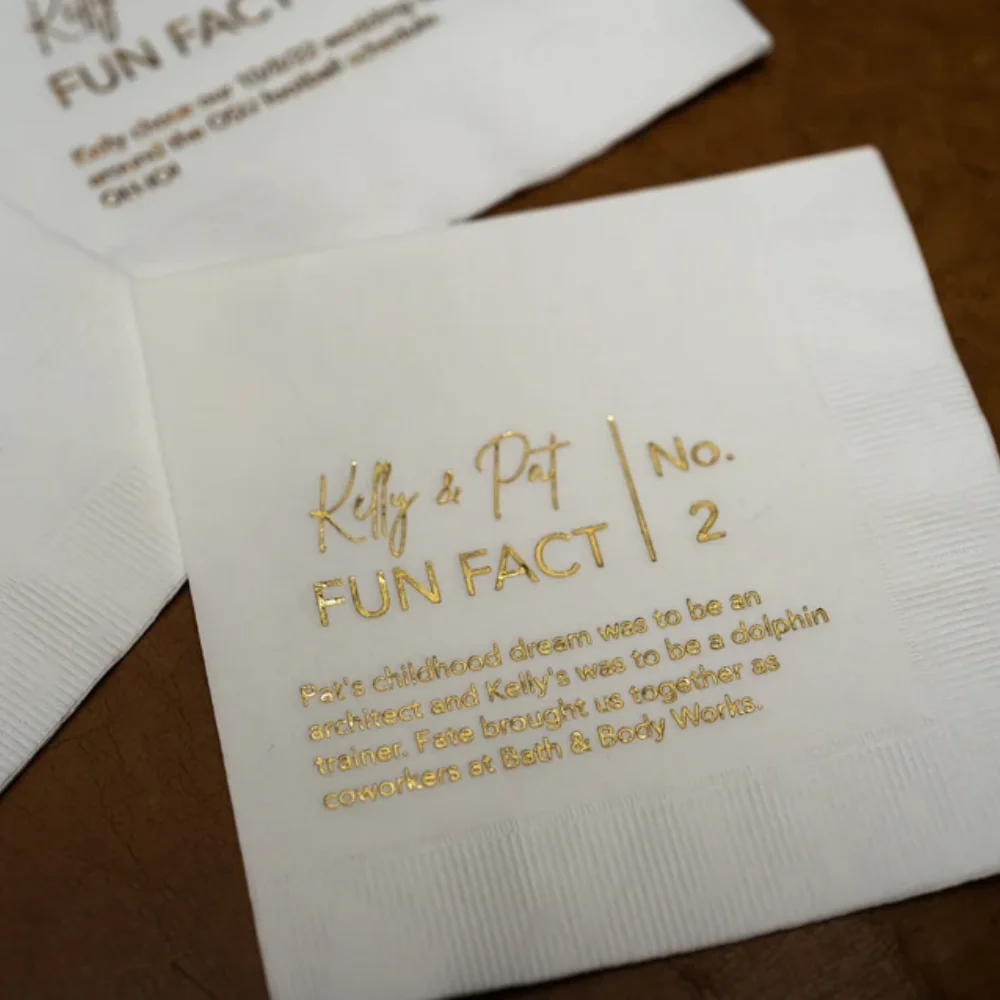 Kelly
FUN FACT
Kelly chose our 10/8/22 wedding
around the OSU football schedule.
OH-IO!
Kelly & Pat
FUN FACT
No.
2
Pat's childhood dream was to be an
architect and Kelly's was to be a dolphin
trainer. Fate brought us together as
coworkers at Bath & Body Works.